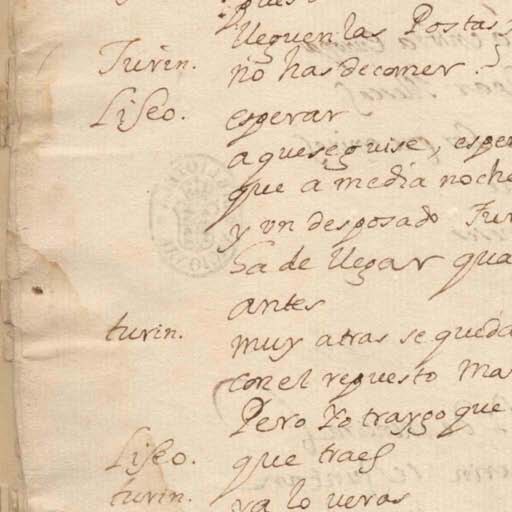 pues
lleguen las Postas
Turin. no has de comer.
Liseo. esperar
a que se guise, esper
que a media noche
y vn desposado Tur
ha de llegar qua
antes
turin. muy atras se queda
con el repuesto Ma
Pero Yo traygo que
Liseo. que traes
turin. ya lo veras